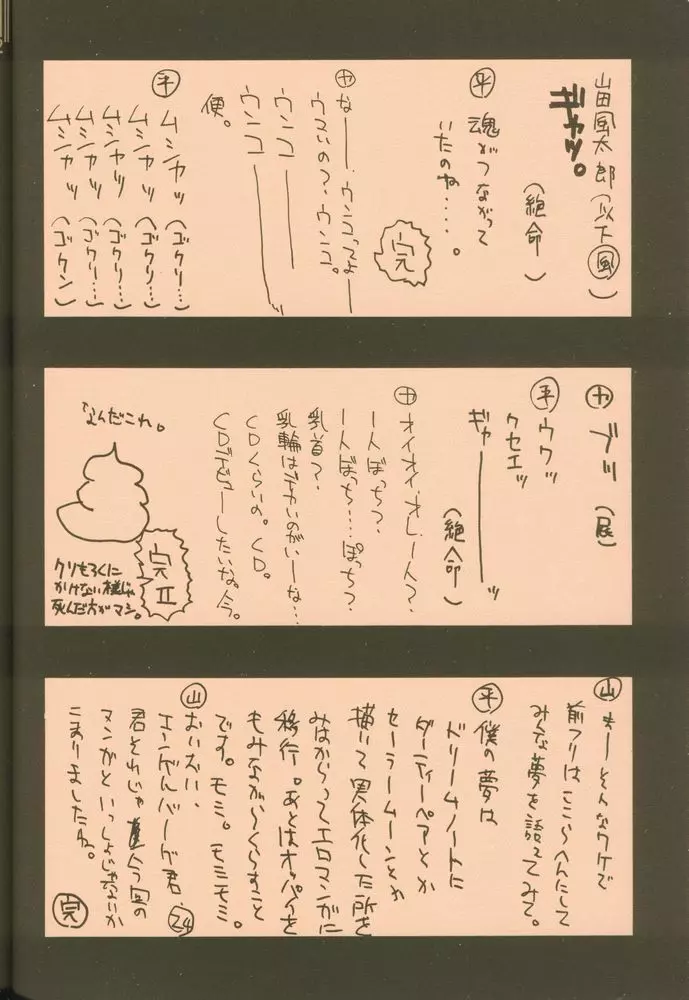 山田風太郎(以下風)
ギャッ。
(絶命)
平
魂がつながって
いたのね・・・・。
完
カ
なー、ウンコってよー
ウマいの?、ウンコ。
ウンコ───
ウンコ───ッ
便。
平
ムシャッ(ゴクリ…)
ムシャッ(ゴクリ…)
ムシャッ(ゴクリ…)
ムシャッ(ゴクリ…)
ムシャッ(ゴクン)
カ ブッ(屁)
平 ウウッ
クセエッ
ギャ────ッ
(絶命)
カ オイオイ、オレ一人?、
一人ぼっち?、
一人ぼっち…ぽっち?、
乳首?、
乳輪はデカいのがいーな…
CDくらいの。CD。
CDデビューしたいな。今。
完II
なんだこれ。
クソもろくに
かけない様じゃ
死んだ方がマシ。
山 まーそんなワケで
前フリはここらへんにして
みんな夢を語ってみて。
平 僕の夢は
ドリームノートに
ダーティーペアとか
セーラームーンとか
描いて実体化した所を
みはからってエロマンガに
移行。あとはオッパイを
もみながらくらすこと
です。モミ。モミモミ。
山 おいおい、
エンゲルバーグ君(24)
君それじゃ今回の
マンガといっしょじゃないか
こまりましたね。
完